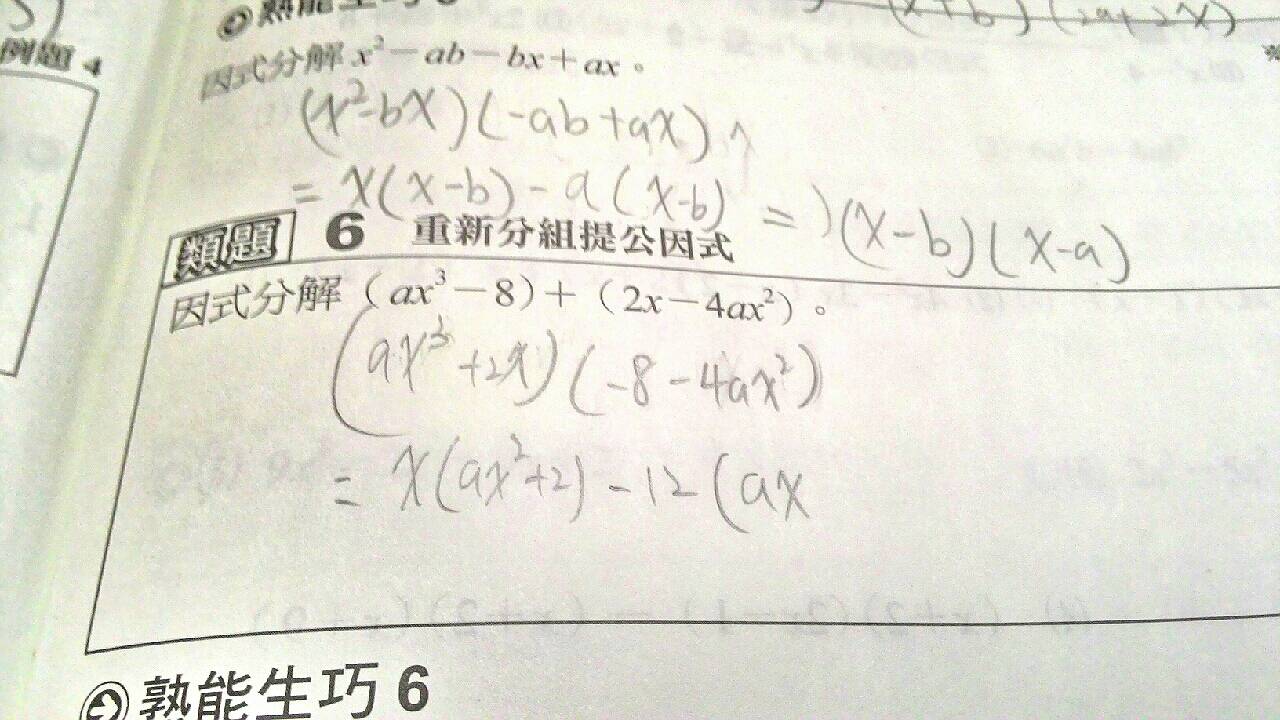 例題 4
熟能生巧 6
(x+b)(2a+2x)
因式分解 x²－ab－bx＋ax。
(x²-bx)(-ab+ax)
= x(x-b)-a(x-b) = (x-b)(x-a)
類題 6 重新分組提公因式
因式分解（ax³－8）＋（2x－4ax²）。
(ax³+2x)(-8-4ax²)
= x(ax²+2)-12(ax
熟能生巧 6